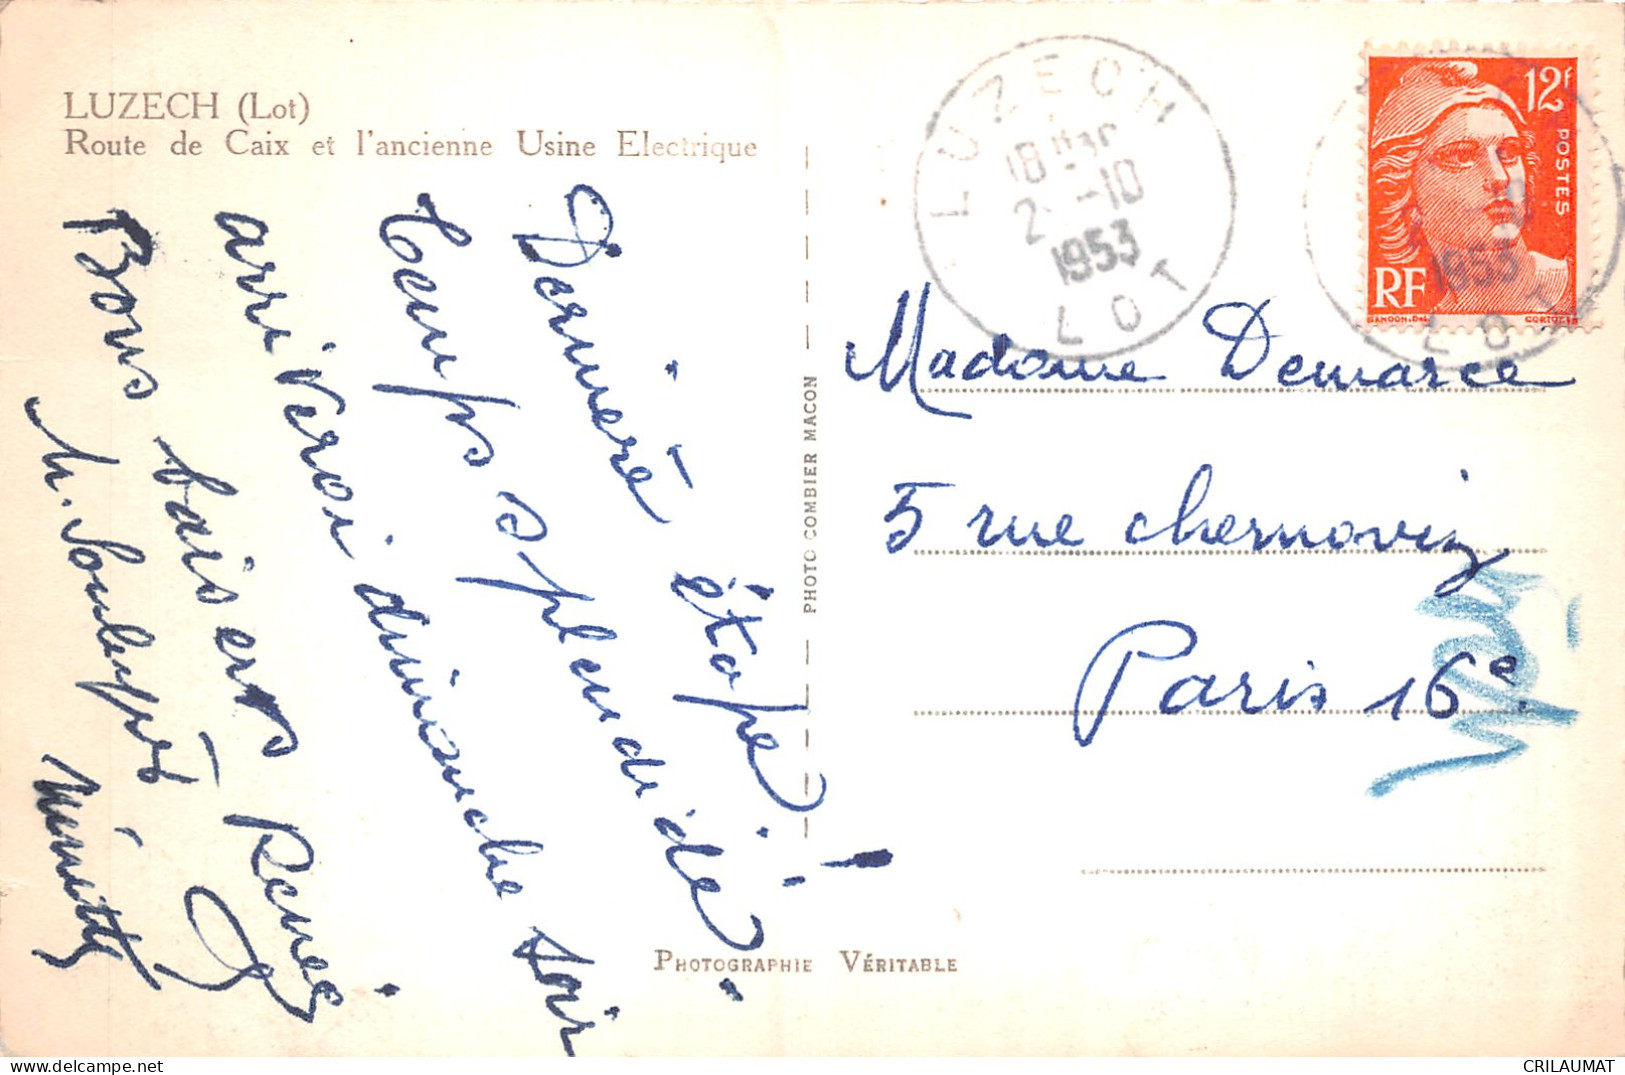 LUZECH (Lot)
Route de Caix et l'ancienne Usine Electrique
Dernière étape!
temps splendide.
arriverai dimanche soir.
Bons baisers René
M.
Minette
PHOTO COMBIER MACON
PHOTOGRAPHIE VÉRITABLE
LUZECH
18H
2 -10
1953
LOT
12f
POSTES
RF
GANDON.DEL
CORTOT.SC
1953
LOT
Madame Demarce
5 rue Chernoviz
Paris 16e.
CRILAUMAT